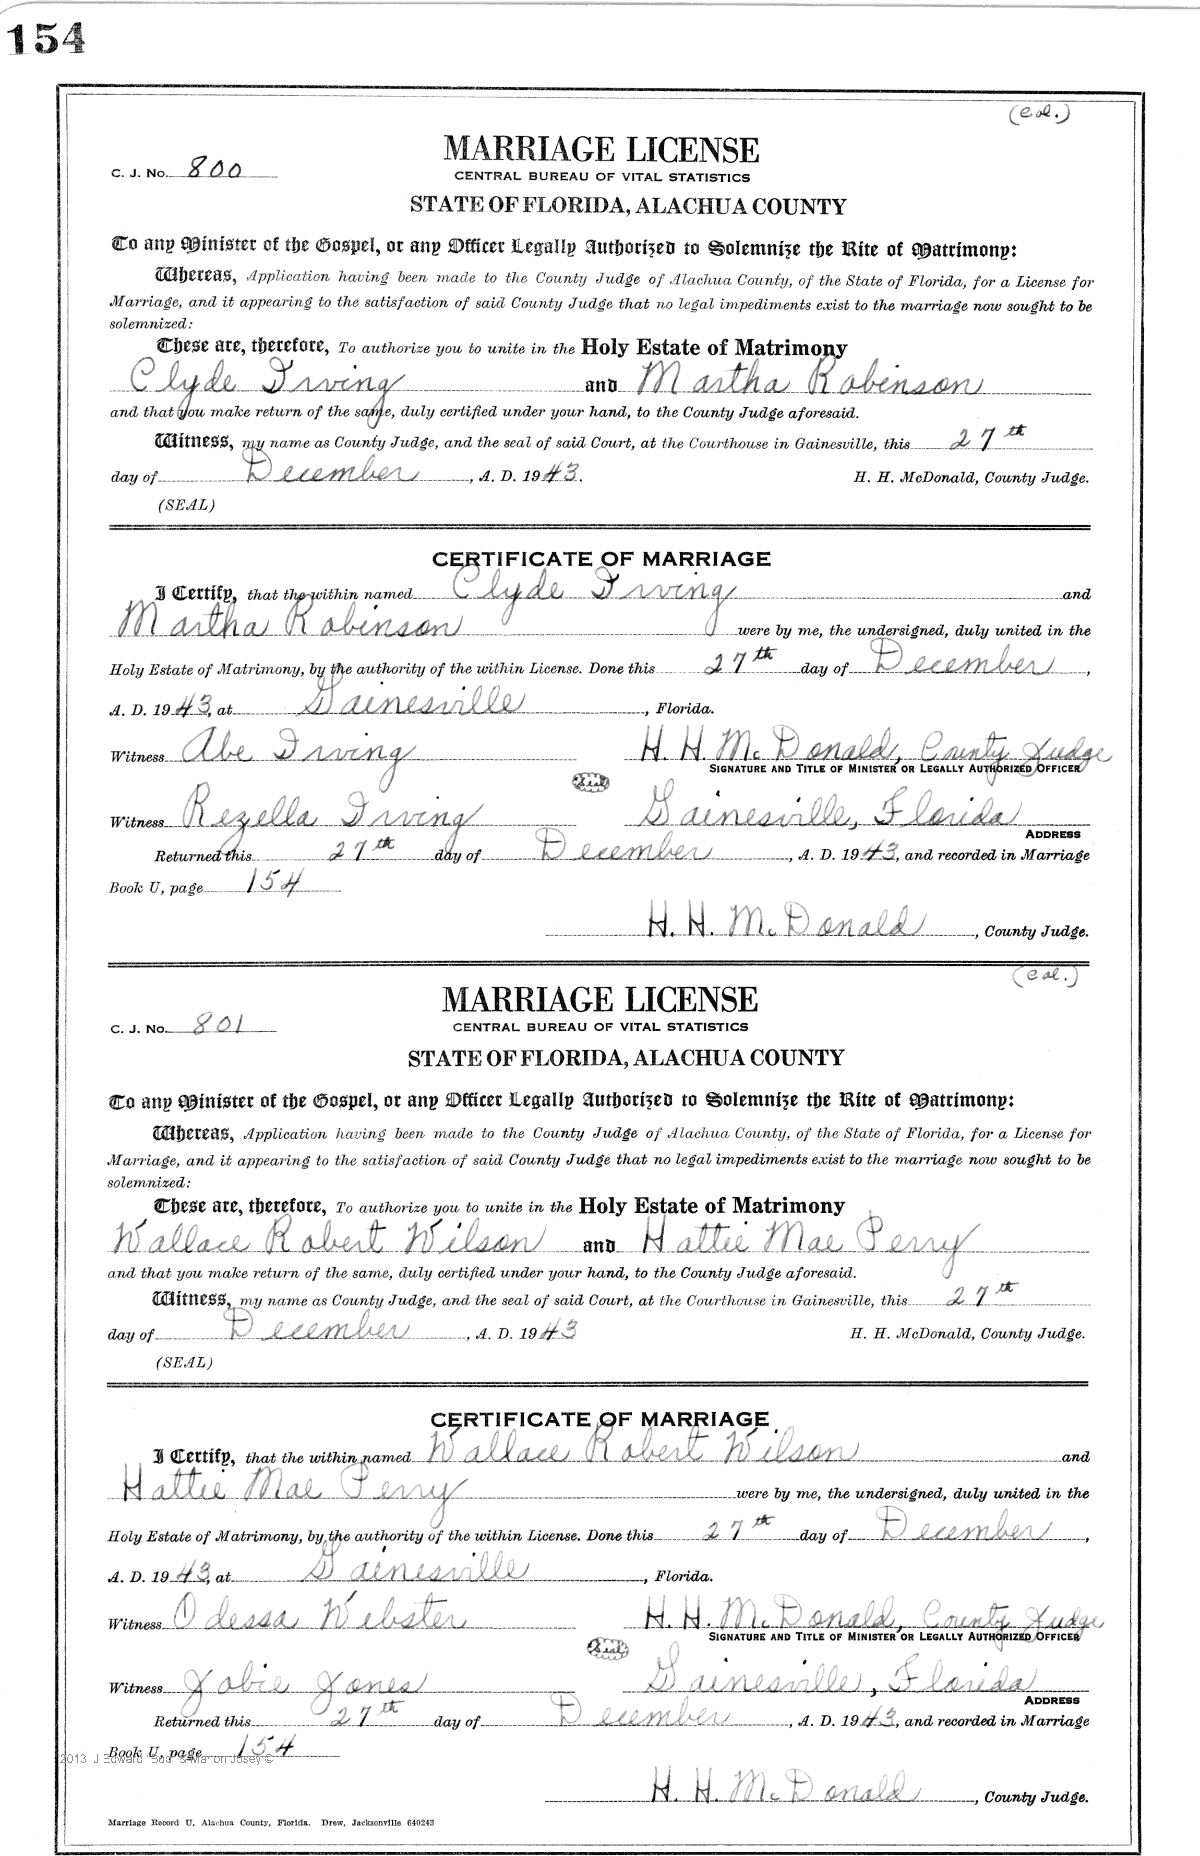 154
(Col.)
MARRIAGE LICENSE
C. J. No. 800
CENTRAL BUREAU OF VITAL STATISTICS
STATE OF FLORIDA, ALACHUA COUNTY
To any Minister of the Gospel, or any Officer Legally Authorized to Solemnize the Rite of Matrimony:
Whereas, Application having been made to the County Judge of Alachua County, of the State of Florida, for a License for
Marriage, and it appearing to the satisfaction of said County Judge that no legal impediments exist to the marriage now sought to be
solemnized:
These are, therefore, To authorize you to unite in the Holy Estate of Matrimony
Clyde Irving and Martha Robinson
and that you make return of the same, duly certified under your hand, to the County Judge aforesaid.
Witness, my name as County Judge, and the seal of said Court, at the Courthouse in Gainesville, this 27th
day of December, A. D. 1943. H. H. McDonald, County Judge.
(SEAL)
CERTIFICATE OF MARRIAGE
I Certify, that the within named Clyde Irving and
Martha Robinson were by me, the undersigned, duly united in the
Holy Estate of Matrimony, by the authority of the within License. Done this 27th day of December,
A. D. 1943, at Gainesville, Florida.
Witness Abe Irving H. H. McDonald, County Judge
SIGNATURE AND TITLE OF MINISTER OR LEGALLY AUTHORIZED OFFICER
Seal
Witness Rezella Irving Gainesville, Florida
ADDRESS
Returned this 27th day of December, A. D. 1943, and recorded in Marriage
Book U, page 154
H. H. McDonald, County Judge.
(Col.)
MARRIAGE LICENSE
C. J. No. 801
CENTRAL BUREAU OF VITAL STATISTICS
STATE OF FLORIDA, ALACHUA COUNTY
To any Minister of the Gospel, or any Officer Legally Authorized to Solemnize the Rite of Matrimony:
Whereas, Application having been made to the County Judge of Alachua County, of the State of Florida, for a License for
Marriage, and it appearing to the satisfaction of said County Judge that no legal impediments exist to the marriage now sought to be
solemnized:
These are, therefore, To authorize you to unite in the Holy Estate of Matrimony
Wallace Robert Wilson and Hattie Mae Perry
and that you make return of the same, duly certified under your hand, to the County Judge aforesaid.
Witness, my name as County Judge, and the seal of said Court, at the Courthouse in Gainesville, this 27th
day of December, A. D. 1943 H. H. McDonald, County Judge.
(SEAL)
CERTIFICATE OF MARRIAGE
I Certify, that the within named Wallace Robert Wilson and
Hattie Mae Perry were by me, the undersigned, duly united in the
Holy Estate of Matrimony, by the authority of the within License. Done this 27th day of December,
A. D. 1943, at Gainesville, Florida.
Witness Odessa Webster H. H. McDonald, County Judge
SIGNATURE AND TITLE OF MINISTER OR LEGALLY AUTHORIZED OFFICER
Seal
Witness Jobie Jones Gainesville, Florida
ADDRESS
Returned this 27th day of December, A. D. 1943, and recorded in Marriage
Book U, page 154
2013 J Edward
H. H. McDonald, County Judge.
Marriage Record U, Alachua County, Florida. Drew, Jacksonville 640243